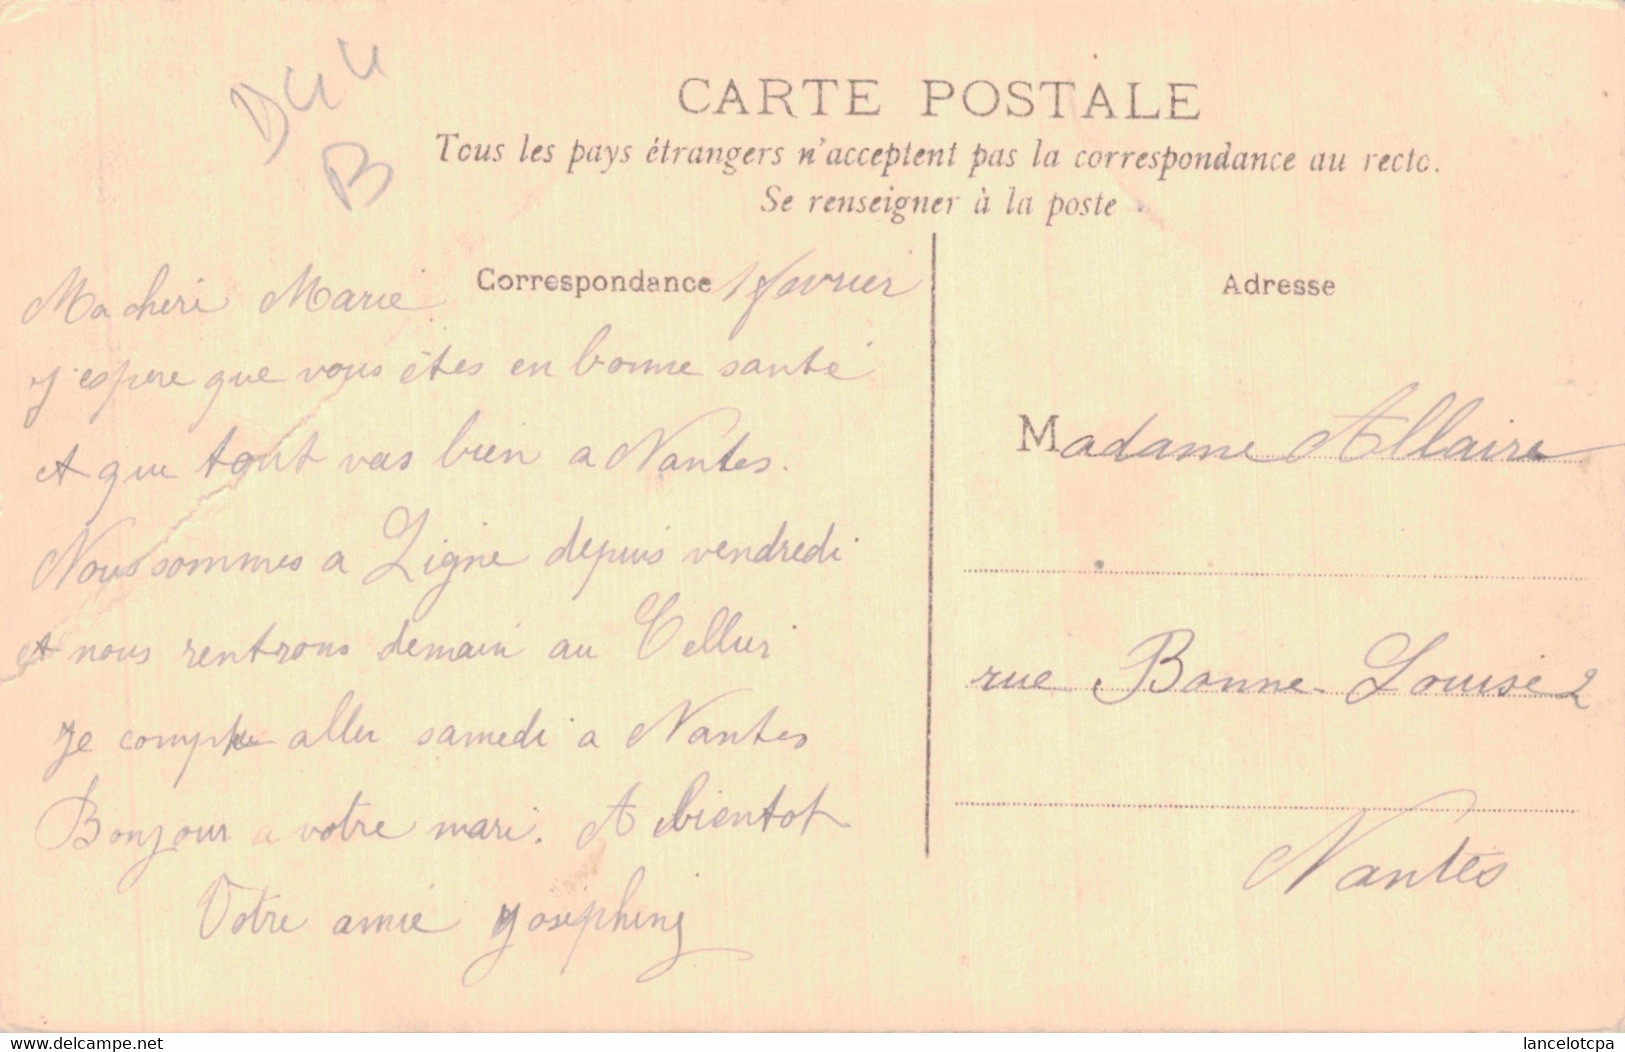 D44
B
CARTE POSTALE
Tous les pays étrangers n'acceptent pas la correspondance au recto.
Se renseigner à la poste
Correspondance 1 fevrier
Ma cheri Marie
J'espere que vous êtes en bonne santé
et que tout vas bien a Nantes.
Nous sommes a Ligné depuis vendredi
et nous rentrons demain au Cellier
Je compte aller samedi a Nantes
Bonjour a votre mari. A bientot
Votre amie Joséphine
Adresse
Madame Allaire
rue Bonne-Louise 2
Nantes
delcampe.net
lancelotcpa